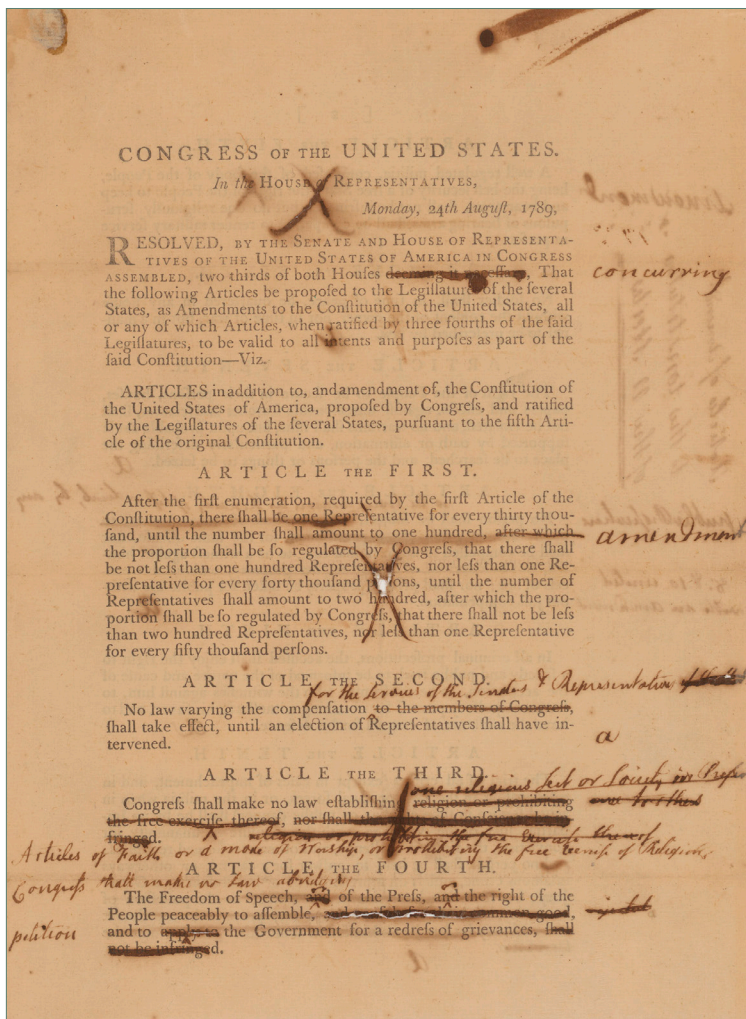 CONGRESS OF THE UNITED STATES.
In the HOUSE of REPRESENTATIVES,
Monday, 24th Auguſt, 1789,
RESOLVED, BY THE SENATE AND HOUSE OF REPRESENTA-
TIVES OF THE UNITED STATES OF AMERICA IN CONGRESS
ASSEMBLED, two thirds of both Houſes deeming it neceſſary, That
concurring
the following Articles be propoſed to the Legiſlatures of the ſeveral
States, as Amendments to the Conſtitution of the United States, all
or any of which Articles, when ratified by three fourths of the ſaid
Legiſlatures, to be valid to all intents and purpoſes as part of the
ſaid Conſtitution—Viz.
ARTICLES in addition to, and amendment of, the Conſtitution of
the United States of America, propoſed by Congreſs, and ratified
by the Legiſlatures of the ſeveral States, purſuant to the fifth Arti-
cle of the original Conſtitution.
ARTICLE THE FIRST.
After the firſt enumeration, required by the firſt Article of the
Conſtitution, there ſhall be one Repreſentative for every thirty thou-
ſand, until the number ſhall amount to one hundred, after which
amendment
the proportion ſhall be ſo regulated by Congreſs, that there ſhall
be not leſs than one hundred Repreſentatives, nor leſs than one Re-
preſentative for every forty thouſand perſons, until the number of
Repreſentatives ſhall amount to two hundred, after which the pro-
portion ſhall be ſo regulated by Congreſs, that there ſhall not be leſs
than two hundred Repreſentatives, nor leſs than one Repreſentative
for every fifty thouſand perſons.
ARTICLE THE SECOND.
for the services of the Senators & Representatives
No law varying the compenſation to the members of Congreſs,
ſhall take effect, until an election of Repreſentatives ſhall have in-
a
tervened.
ARTICLE THE THIRD.
one religious Sect or Society in
Congreſs ſhall make no law eſtabliſhing religion or prohibiting
the free exerciſe thereof, nor ſhall the rights of Conſcience be in-
fringed.
religion or prohibiting the free exercise thereof
Articles of Faith or a mode of Worship, or prohibiting the free exercise of Religion,
ARTICLE THE FOURTH.
Congreſs shall make no law abridging
The Freedom of Speech, and of the Preſs, and the right of the
People peaceably to aſſemble, common good,
petition
and to apply to the Government for a redreſs of grievances, ſhall
not be infringed.